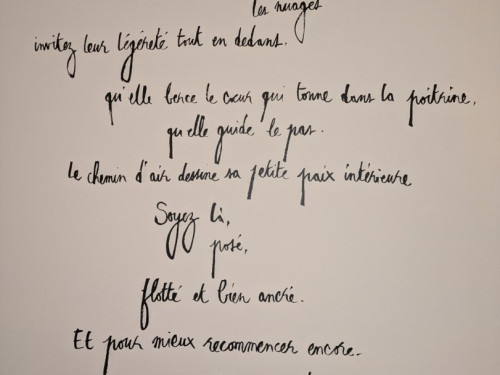 les nuages
invitez leur légéreté tout en dedans.
qu'elle berce le cœur qui tonne dans la poitrine,
qu'elle guide le pas.
le chemin d'air dessine sa petite paix intérieure
Soyez là,
posé,
flotté et bien ancré.
Et pour mieux recommencer encore.